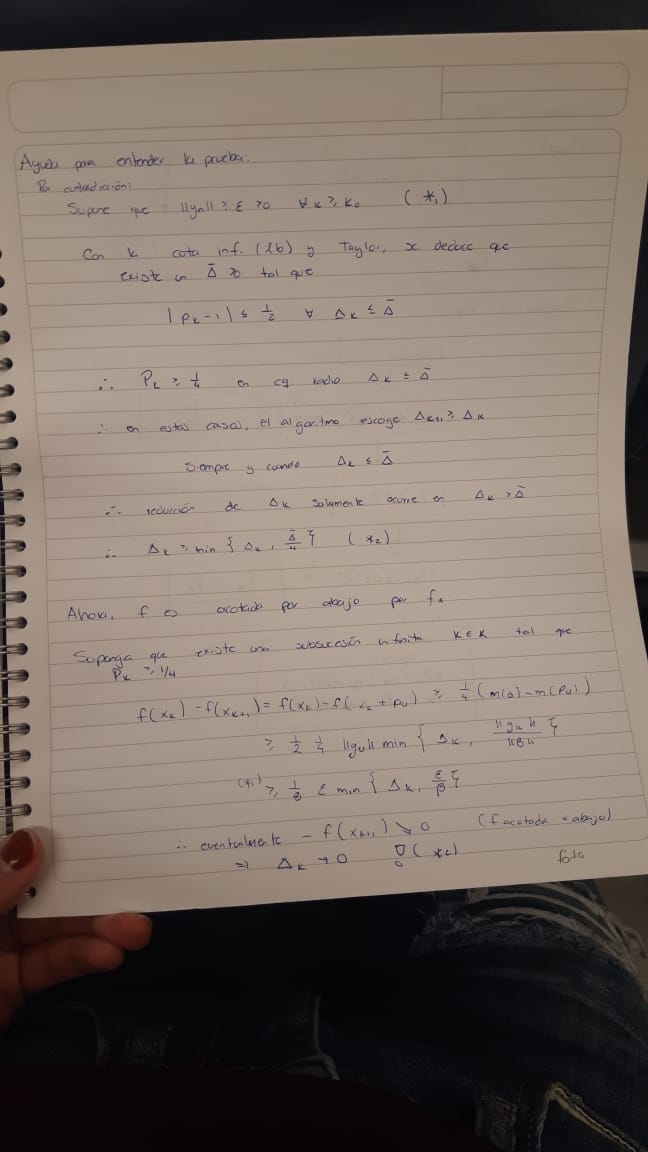 Ayuda para entender la prueba:
Por contradicción:
Supone que ||gk|| ≥ ε > 0 ∀ k ≥ k₀ (*₁)
Con la cota inf. (lb) y Taylor, se deduce que
existe un Δ̄ > 0 tal que
|ρk - 1| ≤ 1/2 ∀ Δk ≤ Δ̄
∴ ρk ≥ 1/4 en cq radio Δk ≤ Δ̄
∴ en estos casos, el algoritmo escoge Δk+1 ≥ Δk
siempre y cuando Δk ≤ Δ̄
∴ reducción de Δk solamente ocurre en Δk > Δ̄
∴ Δk ≥ min { Δk, Δ̄/4 } (*₂)
Ahora, f es acotada por abajo por f*
Suponga que existe una subsucesión infinita k ∈ K tal que
ρk ≥ 1/4
f(xk) - f(xk+1) = f(xk) - f(xk + pk) ≥ 1/4 (m(0) - m(pk))
≥ 1/2 1/4 ||gk|| min { Δk, ||gk||/||Bk|| }
(*₁) ≥ 1/8 ε min { Δk, ε/β }
∴ eventualmente - f(xk+1) ↘ 0 (f acotada x abajo)
⇒ Δk → 0 (*₂)
foto